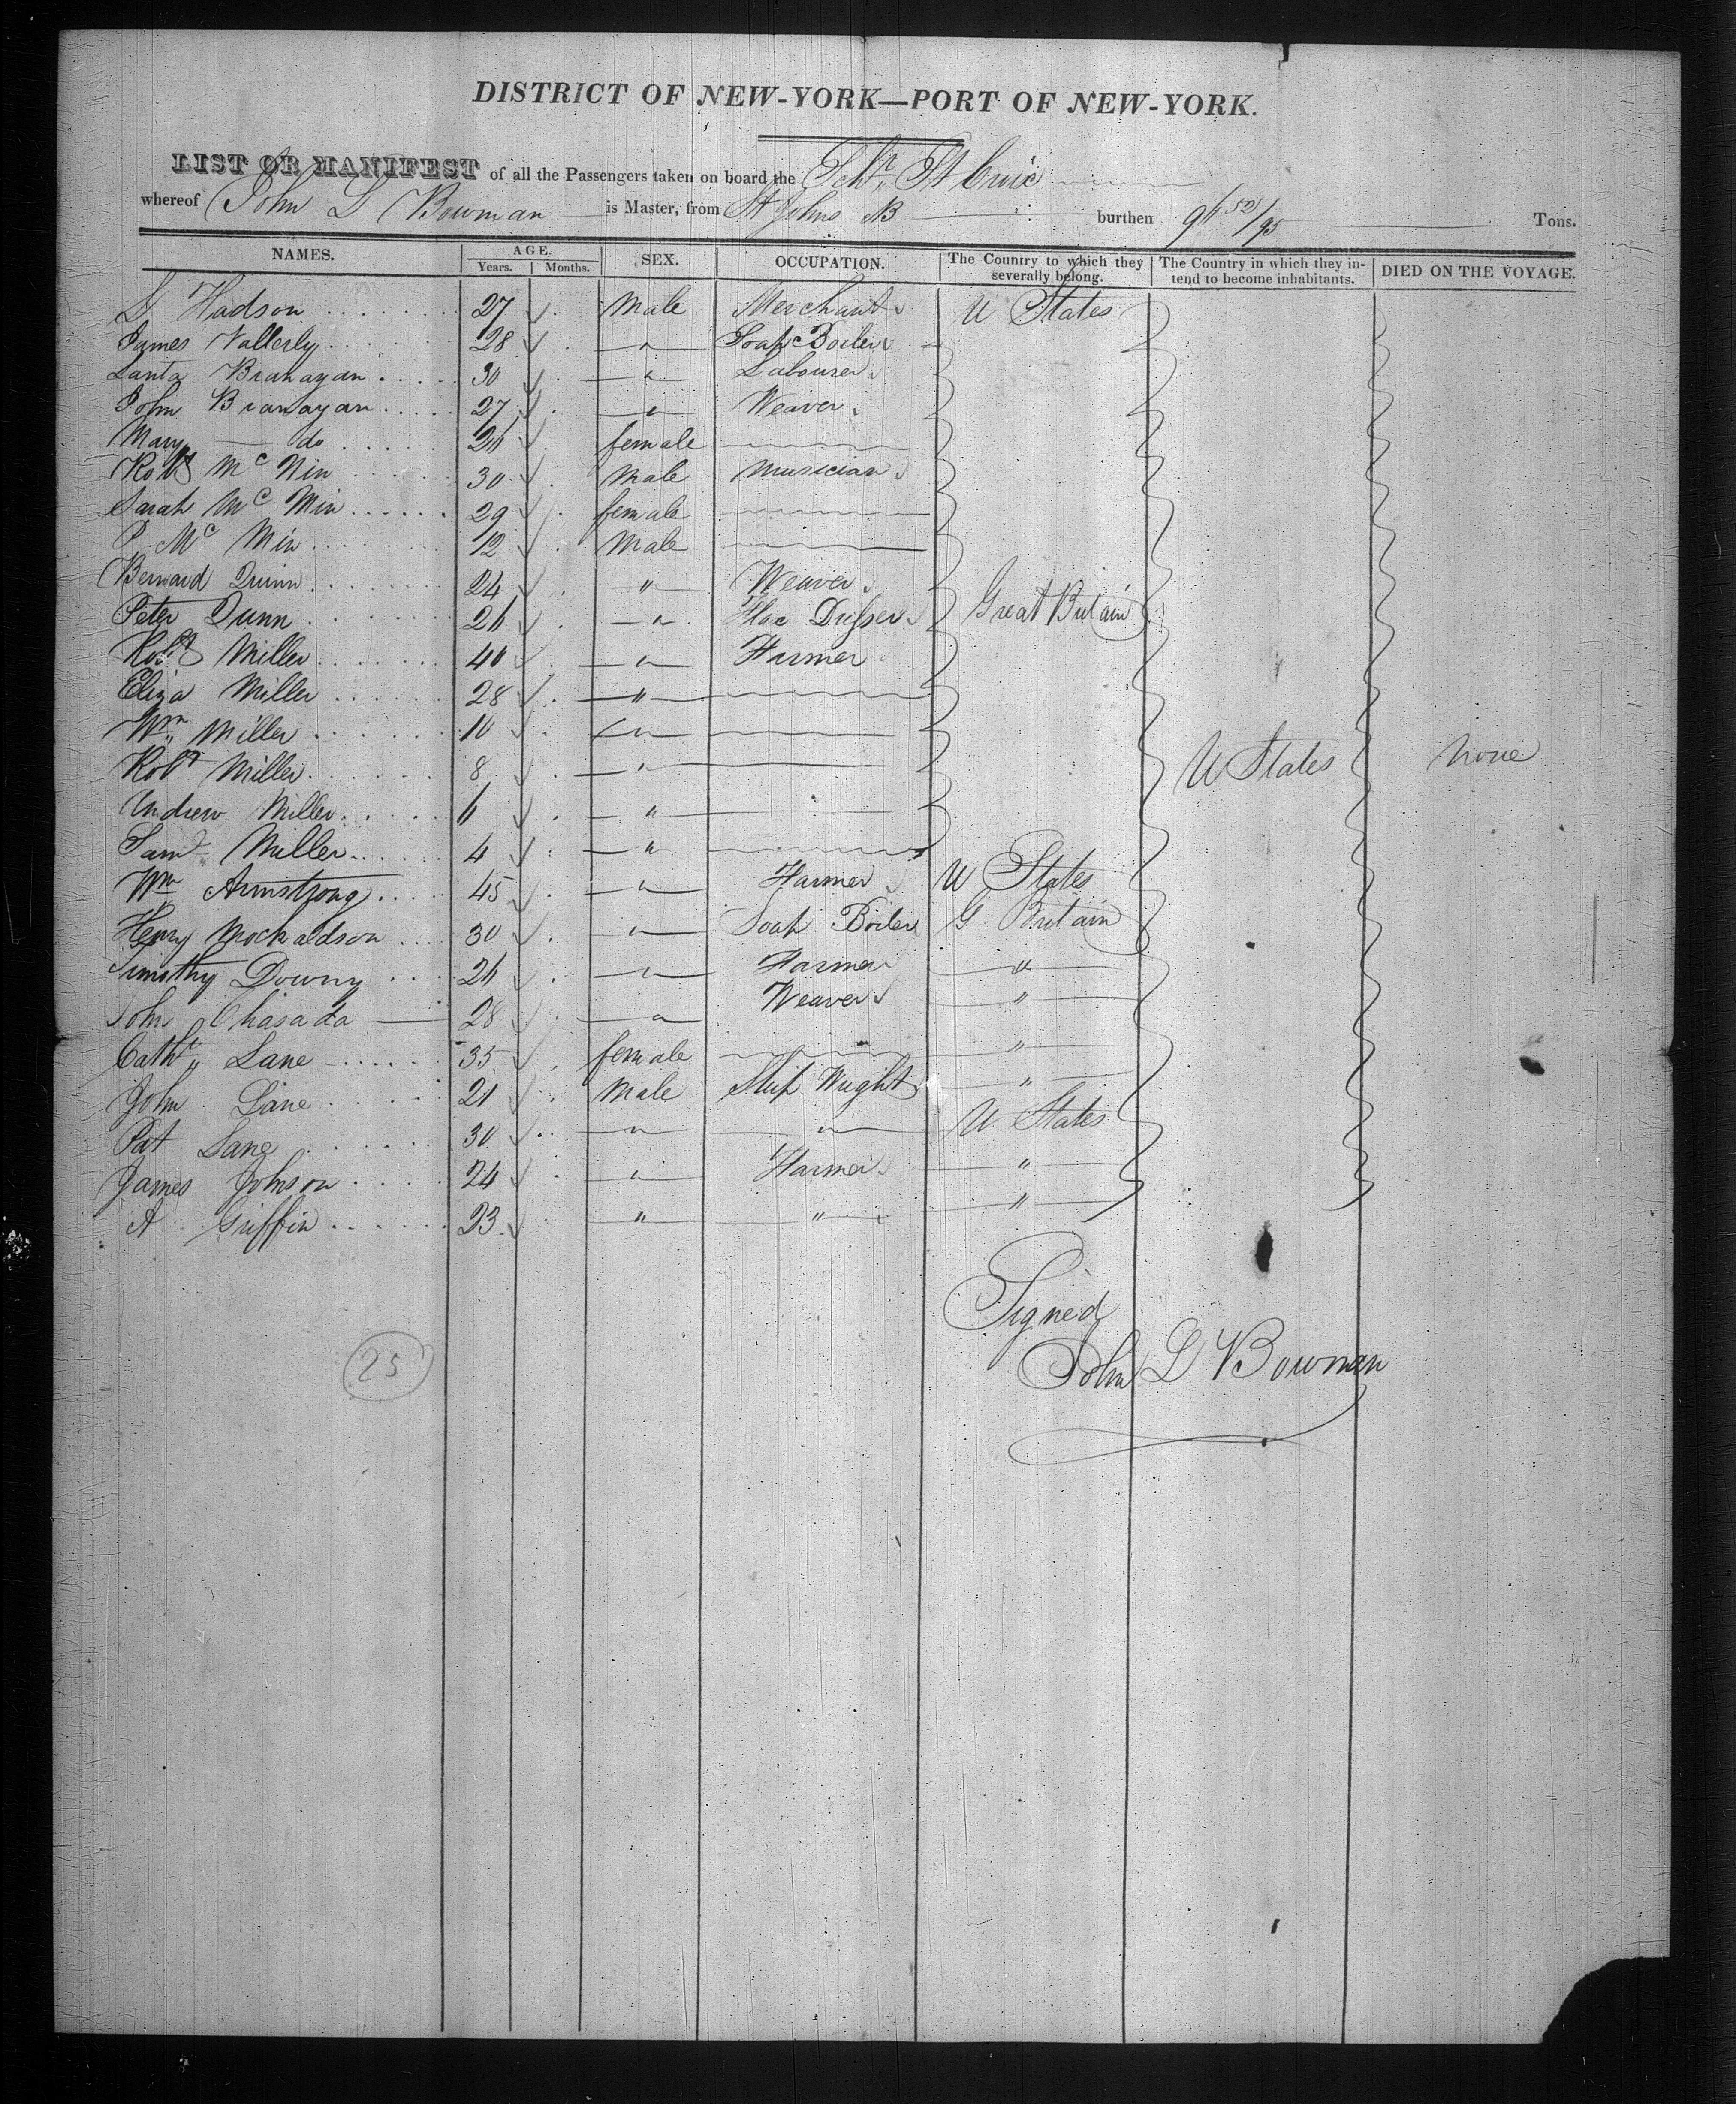 DISTRICT OF NEW-YORK—PORT OF NEW-YORK.
LIST OR MANIFEST of all the Passengers taken on board the Schr. St Cruic
whereof John L Bowman is Master, from St Johns NB burthen 96 52/95 Tons.
NAMES. AGE. Years. Months. SEX. OCCUPATION. The Country to which they severally belong. The Country in which they intend to become inhabitants. DIED ON THE VOYAGE.
Hodson 27 Male Merchant U States
James 28 " Soap Boiler
Branagan 30 " Labourer
John Branagan 27 " Weaver
Mary — do 26 female
Robt McNin 30 Male Musician
Sarah Mc Min 29 female
P Mc Min 12 Male
Bernard Quinn 24 " Weaver
Peter Dunn 26 " Flax Dresser Great Britain
Robt Miller 40 " Farmer
Eliza Miller 28 "
Wm Miller 10 "
Robt Miller 8 " U States None
Andrew Miller 6 "
Saml Miller 4 "
Wm Armstrong 45 " Farmer U States
Henry 30 " Soap Boiler G Britain
Timothy Downy 26 " Farmer "
John 28 " Weaver "
Catht Lane 35 female "
John Lane 21 Male Ship Wright "
Pat Lane 30 " " U States
James Johnson 24 " Farmer "
A Griffin 23 " " "
Signed
John L Bowman
25